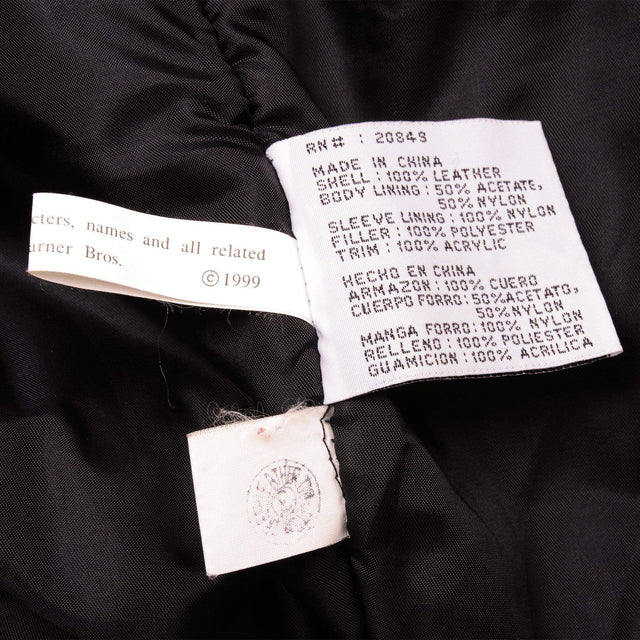 RN# : 20849
MADE IN CHINA
SHELL: 100% LEATHER
BODY LINING: 50% ACETATE,
50% NYLON
SLEEVE LINING: 100% NYLON
FILLER: 100% POLYESTER
TRIM: 100% ACRYLIC
HECHO EN CHINA
ARMAZON: 100% CUERO
CUERPO FORRO: 50% ACETATO,
50% NYLON
MANGA FORRO: 100% NYLON
RELLENO: 100% POLIESTER
GUAMICION: 100% ACRILICA
cters, names and all related
arner Bros.
© 1999